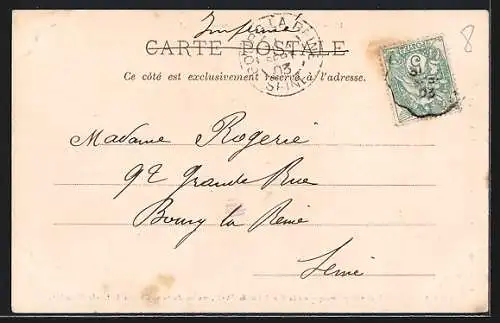 Imprimé
CARTE POSTALE
Ce côté est exclusivement réservé à l'adresse.
BOURG-LA-REINE
03
SEINE
8
Madame Rogerie
92 Grande Rue
Bourg la Reine
Seine